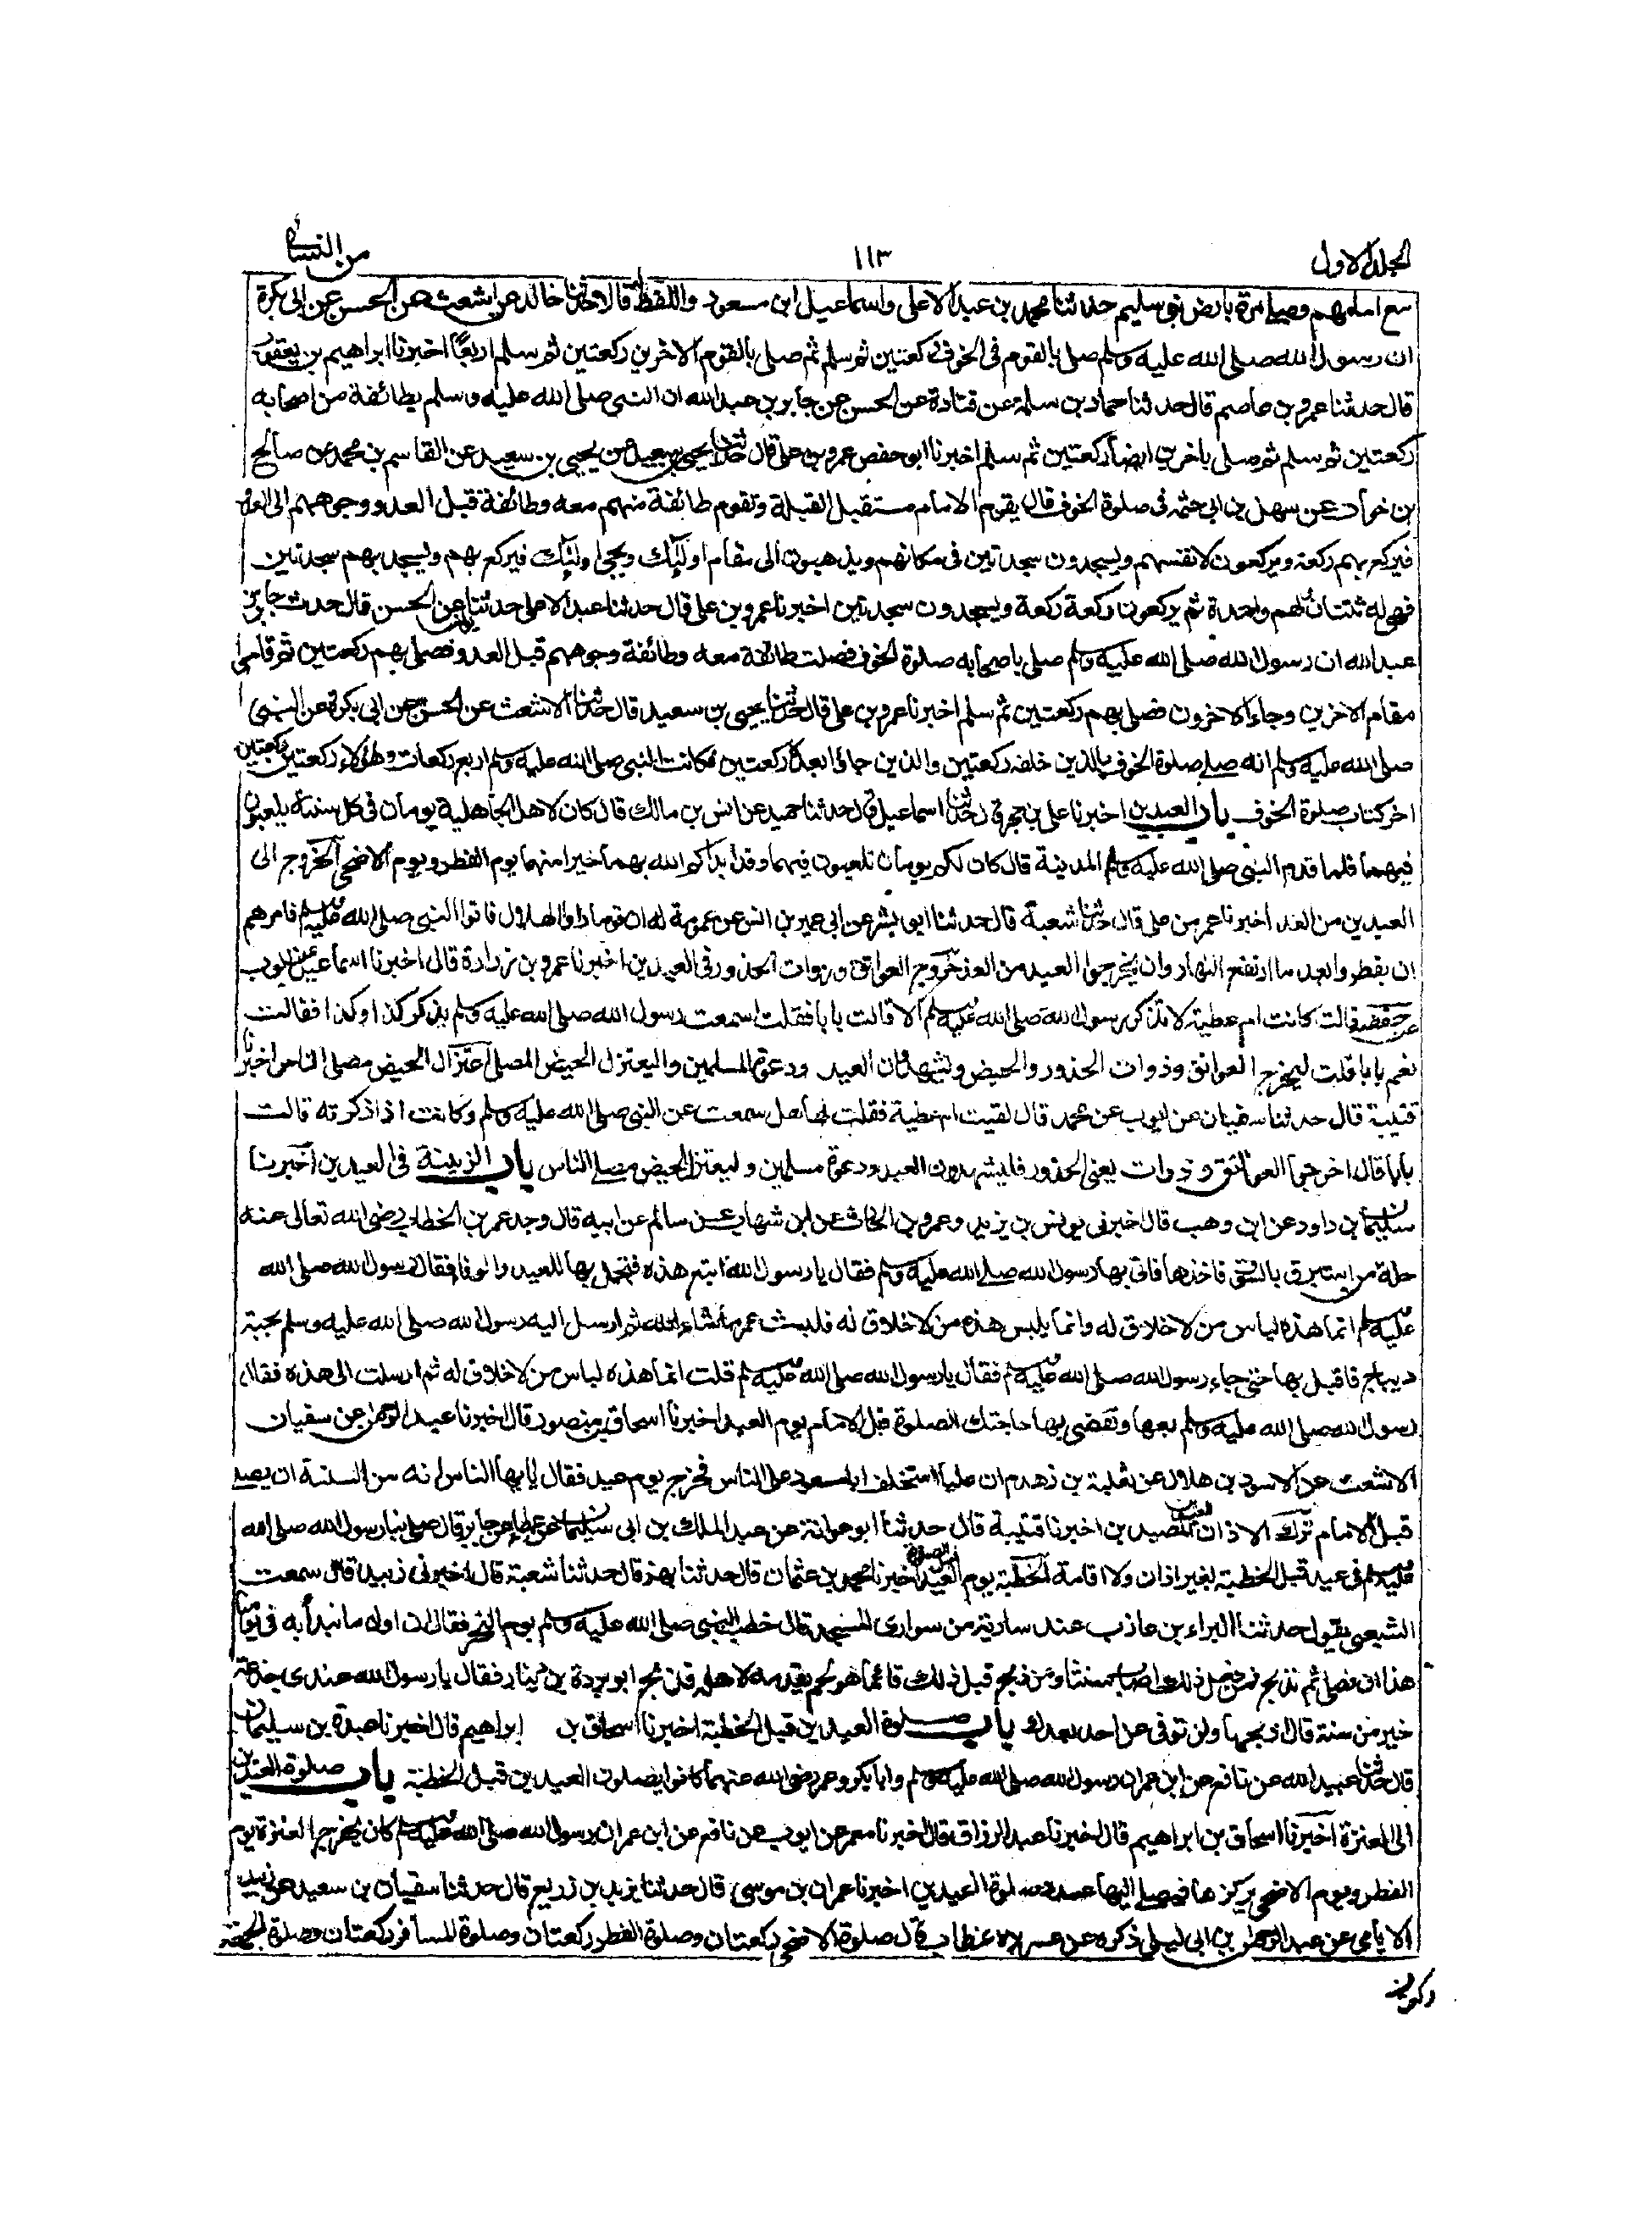 الجلد الاول ١١٣ من النسائ
مع امامهم وصلى مرة بارض بنو سليم حدثنا محمد بن عبد الاعلى واسماعيل ابن مسعود واللفظ له قالا حدثنا خالد عن اشعث عن الحسن عن ابى بكرة
ان رسول الله صلى الله عليه وسلم صلى بالقوم فى الخوف ركعتين ثم سلم ثم صلى بالقوم الاخرين ركعتين ثم سلم اربعاً اخبرنا ابراهيم بن يعقوب
قال حدثنا عمرو بن عاصم قال حدثنا حماد بن سلمة عن قتادة عن الحسن عن جابر بن عبد الله ان النبى صلى الله عليه وسلم بطائفة من اصحابه
ركعتين ثم سلم ثم صلى باخرين ايضا ركعتين ثم سلم اخبرنا ابو حفص عمرو بن على قال حدثنا يحيى بن سعيد عن يحيى بن سعيد عن القاسم بن محمد عن صالح
بن خوات عن سهل بن ابى حثمه فى صلوة الخوف قال يقوم الامام مستقبل القبلة وتقوم طائفة منهم معه وطائفة قبل العدو ووجوههم الى العدو
فيركع بهم ركعة ويركعون لانفسهم ويسجدون سجدتين فى مكانهم ويذهبون الى مقام اولئك ويجئ اولئك فيركع بهم ويسجد بهم سجدتين
فهى له ثنتان ولهم واحدة ثم يركعون ركعة ركعة ويسجدون سجدتين اخبرنا عمرو بن على قال حدثنا عبد الاعلى حدثنا يونس عن الحسن قال حدث جابر بن
عبد الله ان رسول الله صلى الله عليه وسلم صلى باصحابه صلوة الخوف فصلت طائفة معه وطائفة وجوههم قبل العدو فصلى بهم ركعتين ثم قاموا
مقام الاخرين وجاء الاخرون فصلى بهم ركعتين ثم سلم اخبرنا عمرو بن على قال حدثنا يحيى بن سعيد قال حدثنا الاشعث عن الحسن عن ابى بكرة عن النبى
صلى الله عليه وسلم انه صلى صلوة الخوف بالذين خلفه ركعتين والذين جاؤا بعد ركعتين فكانت للنبى صلى الله عليه وسلم اربع ركعات وهؤلاء ركعتين ركعتين
اخر كتاب صلوة الخوف باب العيدين اخبرنا على بن حجر قال حدثنا اسماعيل قال حدثنا حميد عن انس بن مالك قال كان لاهل الجاهلية يومان فى كل سنة يلعبون
فيهما فلما قدم النبى صلى الله عليه وسلم المدينة قال كان لكم يومان تلعبون فيهما وقد ابدلكم الله بهما خيرا منهما يوم الفطر ويوم الاضحى الخروج الى
العيدين من الغد اخبرنا عمر من على قال حدثنا شعبة قال حدثنا ابو بشر عن ابى عمير بن انس عن عمومة له ان قوما راوا الهلال فاتوا النبى صلى الله عليه وسلم فامرهم
ان يفطروا بعد ما ارتفع النهار وان يخرجوا العيد من الغد خروج العواتق وذوات الخدور فى العيدين اخبرنا عمرو بن زرارة قال اخبرنا اسماعيل عن ايوب
عن حفصة قالت كانت ام عطية لا تذكر رسول الله صلى الله عليه وسلم الا قالت بابا فقلت اسمعت رسول الله صلى الله عليه وسلم يذكر كذا وكذا فقالت
نعم بابا قلت ليخرج العواتق وذوات الخدور والحيض ويشهدان العيد ودعوة المسلمين واليعتزل الحيض المصلى اعتزال الحيض مصلى الناس اخبرنا
قتيبة قال حدثنا سفيان عن ايوب عن محمد قال لقيت ام عطية فقلت لها هل سمعت عن النبى صلى الله عليه وسلم وكانت اذا ذكرته قالت
بابا قال اخرجوا العواتق وذوات يعنى الخدور فليشهدون العيد ودعوة مسلمين وليعتزل الحيض مصلى الناس باب الزينة فى العيدين اخبرنا
سليمان بن داود عن ابن وهب قال اخبرنى يونس بن يزيد وعمرو بن الحارث عن ابن شهاب عن سالم عن ابيه قال وجد عمر بن الخطاب رضى الله تعالى عنه
حلة من استبرق بالسوق فاخذها فاتى بها رسول الله صلى الله عليه وسلم فقال يا رسول الله ابتع هذه فتجمل بها للعيد والوفد فقال رسول الله صلى الله
عليه وسلم انما هذه لباس من لا خلاق له وانما يلبس هذه من لا خلاق له فلبث عمر ما شاء الله ثم ارسل اليه رسول الله صلى الله عليه وسلم بجبة
ديباج فاقبل بها حتى جاء رسول الله صلى الله عليه وسلم فقال يا رسول الله صلى الله عليه وسلم قلت انما هذه لباس من لا خلاق له ثم ارسلت الى هذه فقال
رسول الله صلى الله عليه وسلم بعها وتقضى بها حاجتك الصلوة قبل الامام يوم العيد اخبرنا اسحاق بن منصور قال اخبرنا عبد الرحمن عن سفيان
الاشعث عن الاسود بن هلال عن ثعلبة بن زهدم ان عليا استخلف ابا مسعود على الناس فخرج يوم عيد فقال يا ايها الناس انه من السنة ان يصلى
قبل الامام ترك الاذان للعيدين اخبرنا قتيبة قال حدثنا ابو عوانة عن عبد الملك بن ابى سليمان عن عطاء عن جابر قال صلى بنا رسول الله صلى الله
عليه وسلم فى عيد قبل الخطبة بغير اذان ولا اقامة الخطبة يوم العيد اخبرنا محمد بن عثمان قال حدثنا بهز قال حدثنا شعبة قال اخبرنى زبيد قال سمعت
الشعبى يقول حدثنا البراء بن عازب عند سارية من سوارى المسجد قال خطب النبى صلى الله عليه وسلم يوم النحر فقال ان اول ما نبدأ به فى يومنا
هذا ان نصلى ثم نذبح فمن فعل ذلك اصاب سنتنا ومن ذبح قبل ذلك فانما هو لحم يقدمه لاهله فذبح ابو بردة بن دينار فقال يا رسول الله عندى جذعة
خير من سنة قال اذبحها ولن توفى عن احد بعدك باب صلوة العيدين قبل الخطبة اخبرنا اسحاق بن ابراهيم قال اخبرنا عبدة بن سليمان
قال حدثنا عبيد الله عن نافع عن ابن عمر ان رسول الله صلى الله عليه وسلم وابا بكر وعمر رضى الله عنهما كانوا يصلون العيدين قبل الخطبة باب صلوة العيدين
الى العنزة اخبرنا اسحاق بن ابراهيم قال اخبرنا عبد الرزاق قال اخبرنا معمر عن ايوب عن نافع عن ابن عمر ان رسول الله صلى الله عليه وسلم كان يخرج العنزة يوم
الفطر ويوم الاضحى يركزها فيصلى اليها عدد صلوة العيدين اخبرنا عمران بن موسى قال حدثنا يزيد بن زريع قال حدثنا سفيان بن سعيد عن زبيد
الايامى عن عبد الرحمن بن ابى ليلى ذكره عن عمر ابن خطاب قال صلوة الاضحى ركعتان وصلوة الفطر ركعتان وصلوة المسافر ركعتان وصلوة الجمعة
ركعتان